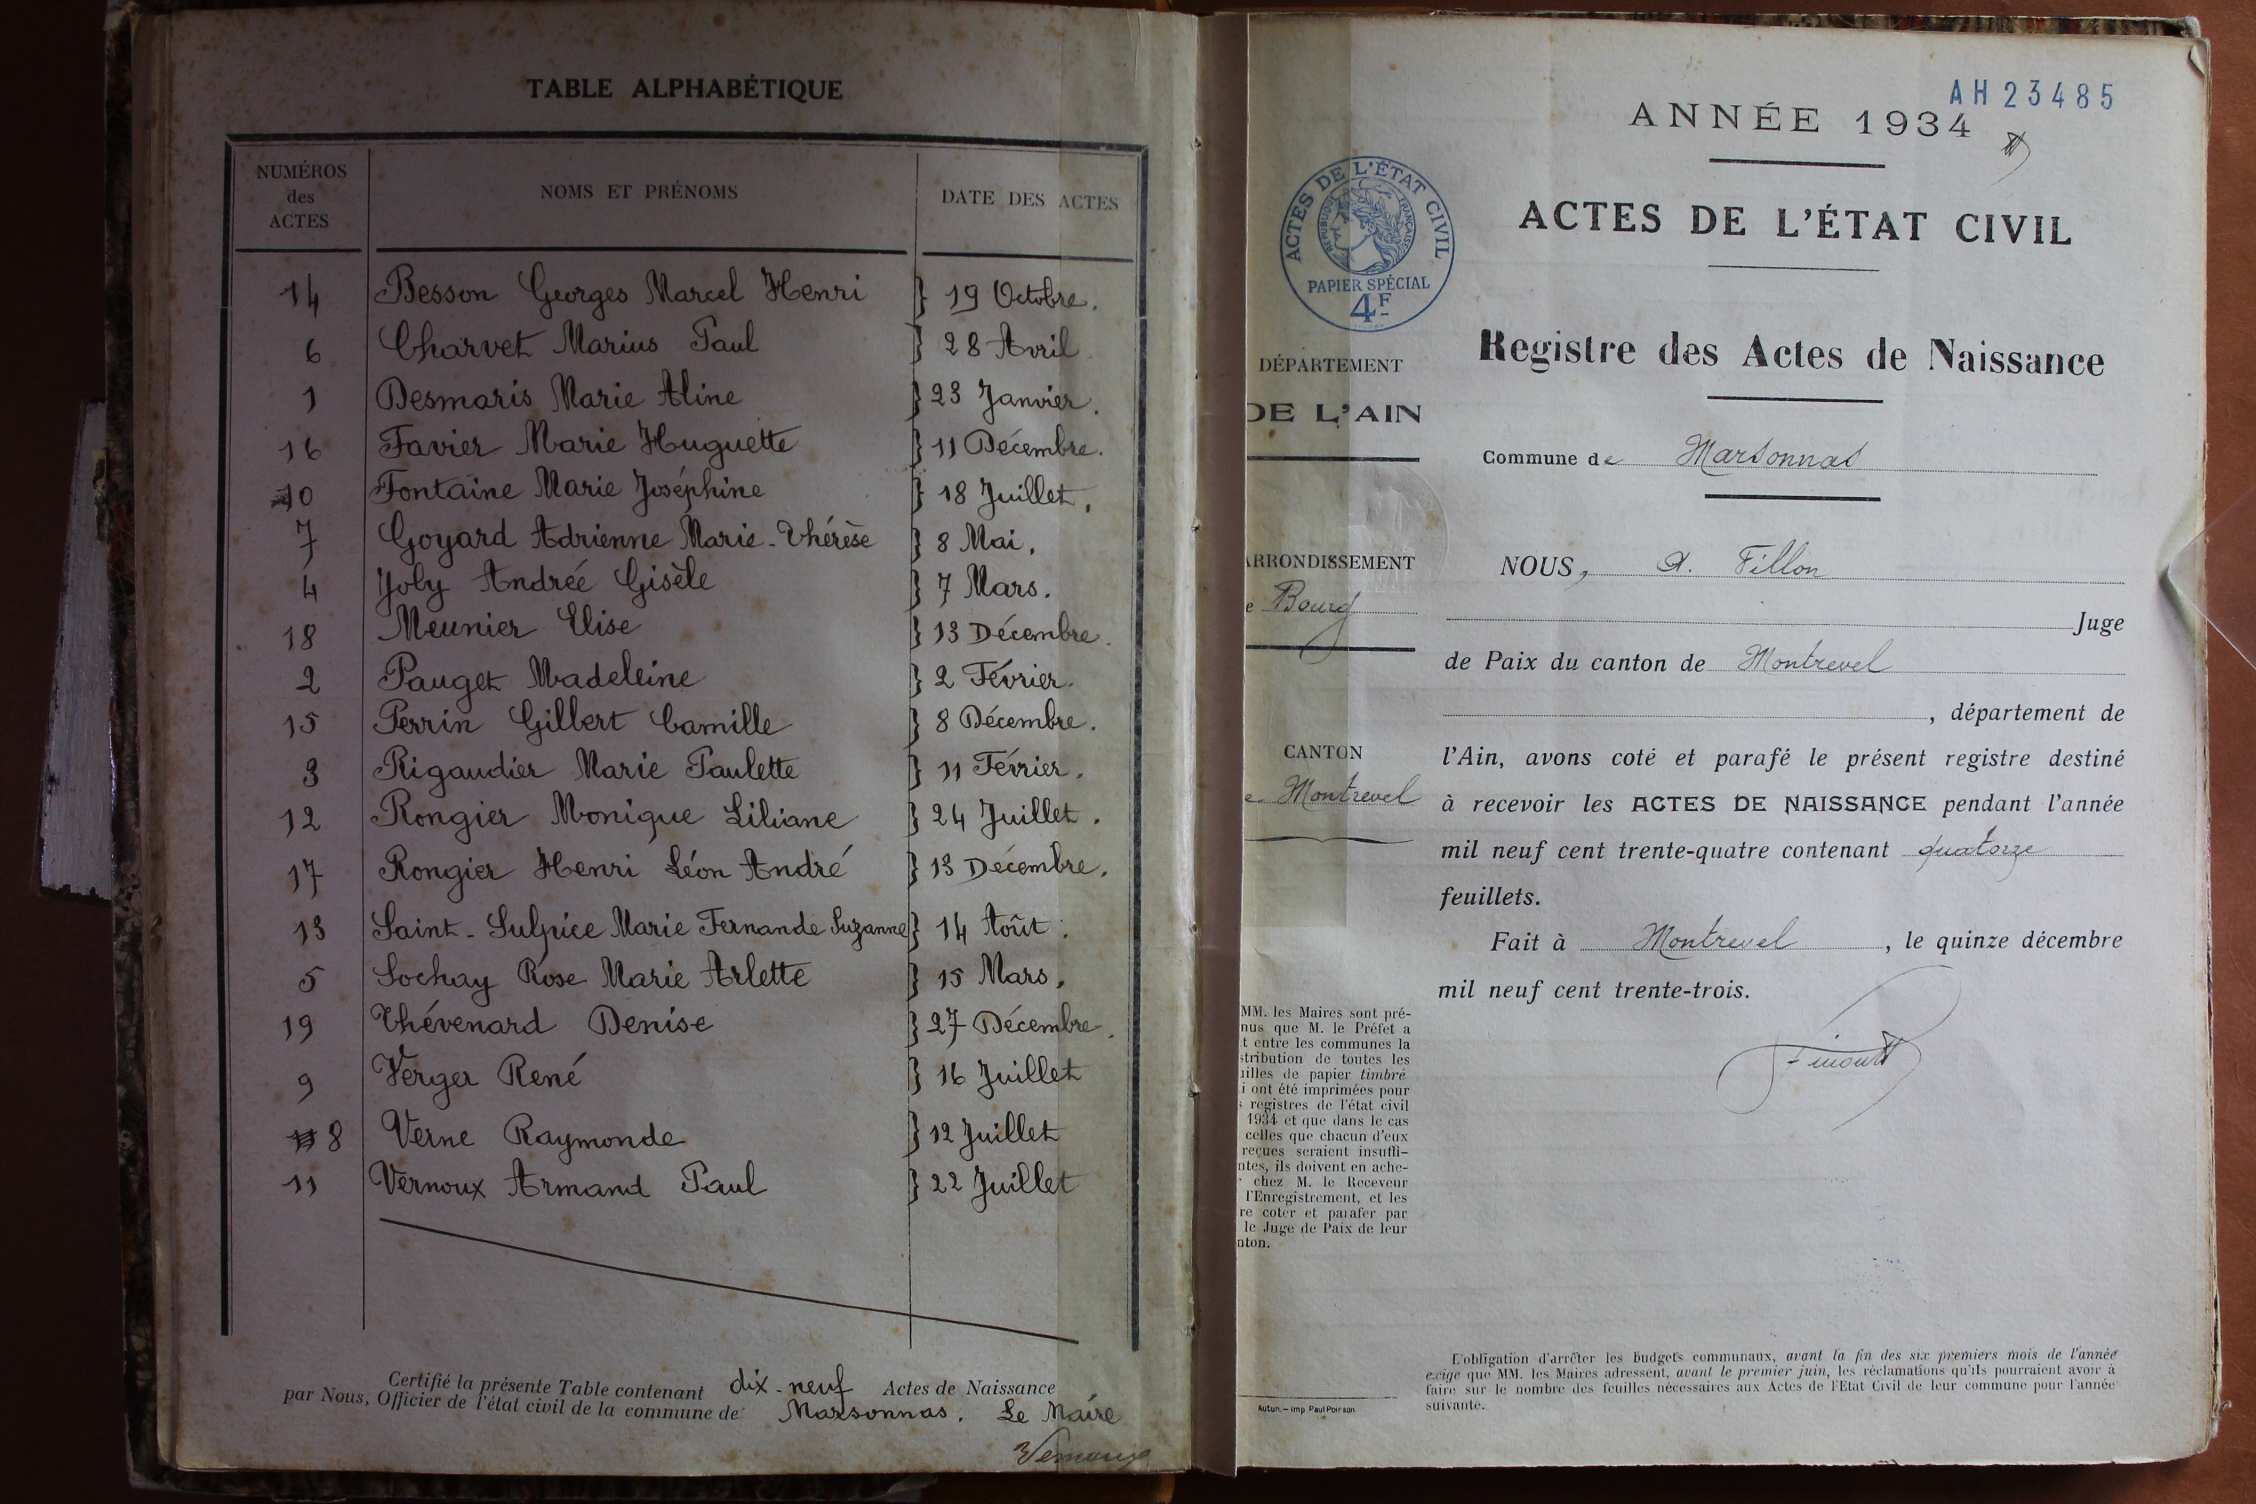 TABLE ALPHABÉTIQUE
NUMÉROS des ACTES NOMS ET PRÉNOMS DATE DES ACTES
14 Besson Georges Marcel Henri } 19 Octobre.
6 Charvet Marius Paul } 28 Avril
1 Desmaris Marie Aline } 23 Janvier.
16 Favier Marie Huguette } 11 Décembre.
10 Fontaine Marie Joséphine } 18 Juillet.
7 Goyard Adrienne Marie-Thérèse } 8 Mai.
4 Joly Andréé Gisèle } 7 Mars.
18 Meunier Elise } 13 Décembre.
2 Pauget Madeleine } 2 Février.
15 Perrin Gilbert Camille } 8 Décembre.
3 Rigaudier Marie Paulette } 11 Février.
12 Rongier Monique Liliane } 24 Juillet.
17 Rongier Henri Léon André } 13 Décembre.
13 Saint-Sulpice Marie Fernande Suzanne } 14 Août.
5 Sochay Rose Marie Arlette } 15 Mars.
19 Thévenard Denise } 27 Décembre.
9 Verger René } 16 Juillet
8 Verne Raymonde } 12 Juillet
11 Vernoux Armand Paul } 22 Juillet
Certifié la présente Table contenant dix-neuf Actes de Naissance
par Nous, Officier de l'état civil de la commune de Marsonnas. Le Maire
Vernoux
AH 23485
ANNÉE 1934
ACTES DE L'ÉTAT CIVIL
RÉPUBLIQUE FRANÇAISE
PAPIER SPÉCIAL
4F
ACTES DE L'ÉTAT CIVIL
Registre des Actes de Naissance
DÉPARTEMENT
DE L'AIN
Commune de Marsonnas
ARRONDISSEMENT
e Bourg
NOUS, A. Fillon
Juge
de Paix du canton de Montrevel
, département de
CANTON
e Montrevel
l'Ain, avons coté et parafé le présent registre destiné
à recevoir les ACTES DE NAISSANCE pendant l'année
mil neuf cent trente-quatre contenant quatorze
feuillets.
Fait à Montrevel, le quinze décembre
mil neuf cent trente-trois.
MM. les Maires sont pré-
nus que M. le Préfet a
t entre les communes la
stribution de toutes les
uilles de papier timbré
i ont été imprimées pour
s registres de l'état civil
1934 et que dans le cas
celles que chacun d'eux
reçues seraient insuffi-
ntes, ils doivent en ache-
r chez M. le Receveur
l'Enregistrement, et les
re coter et parafer par
le Juge de Paix de leur
nton.
L'obligation d'arrêter les budgets communaux, avant la fin des six premiers mois de l'année
exige que MM. les Maires adressent, avant le premier juin, les réclamations qu'ils pourraient avoir à
faire sur le nombre des feuilles nécessaires aux Actes de l'Etat Civil de leur commune pour l'année
suivante.
Autun. – Imp. Paul Poirson